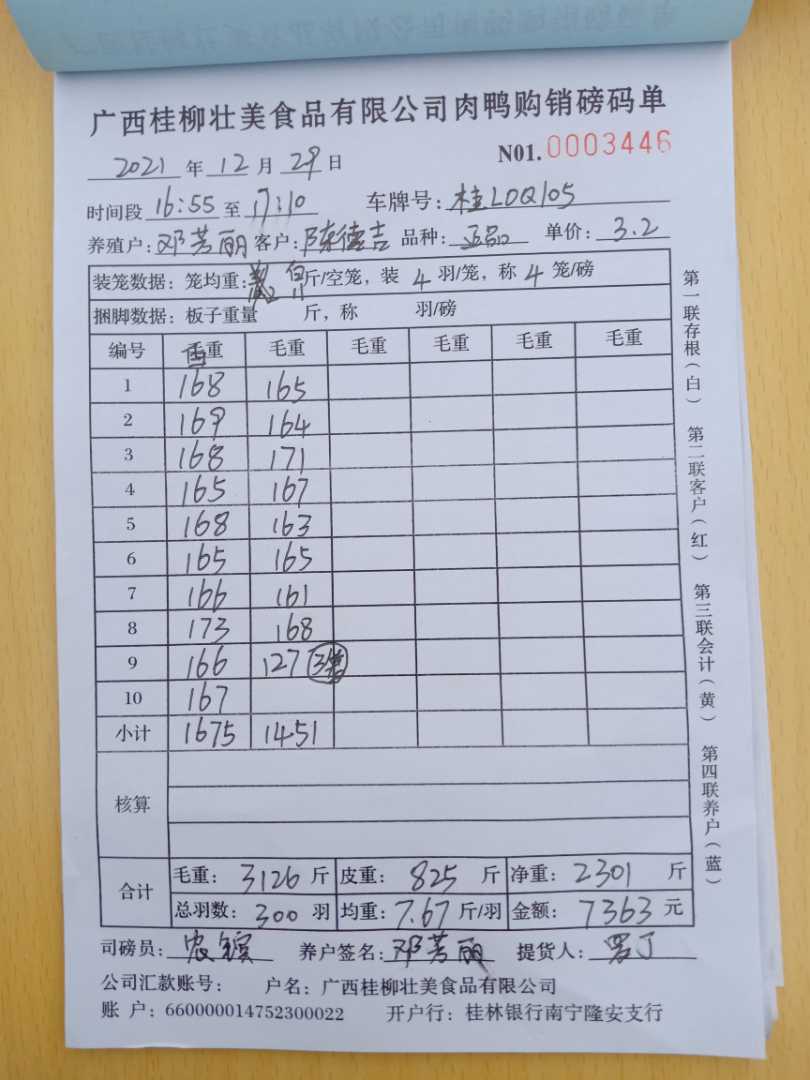 广西桂柳壮美食品有限公司肉鸭购销磅码单
2021 年 12 月 29 日 N01. 0003446
时间段 16:55 至 17:10 车牌号: 桂LDQ105
养殖户: 邓芳丽 客户: 陈德吉 品种: 单价: 3.2
装笼数据: 笼均重: 斤/空笼, 装 4 羽/笼, 称 4 笼/磅
捆脚数据: 板子重量 斤, 称 羽/磅
编号 毛重 毛重 毛重 毛重 毛重 毛重
1 168 165
2 169 164
3 168 171
4 165 167
5 168 163
6 165 165
7 166 161
8 173 168
9 166 127
10 167
小计 1675 1451
核算
合计
毛重: 3126 斤 皮重: 825 斤 净重: 2301 斤
总羽数: 300 羽 均重: 7.67 斤/羽 金额: 7363 元
司磅员: 养户签名: 邓芳丽 提货人:
公司汇款账号: 户名: 广西桂柳壮美食品有限公司
账 户: 660000014752300022 开户行: 桂林银行南宁隆安支行
第一联存根(白) 第二联客户(红) 第三联会计(黄) 第四联养户(蓝)